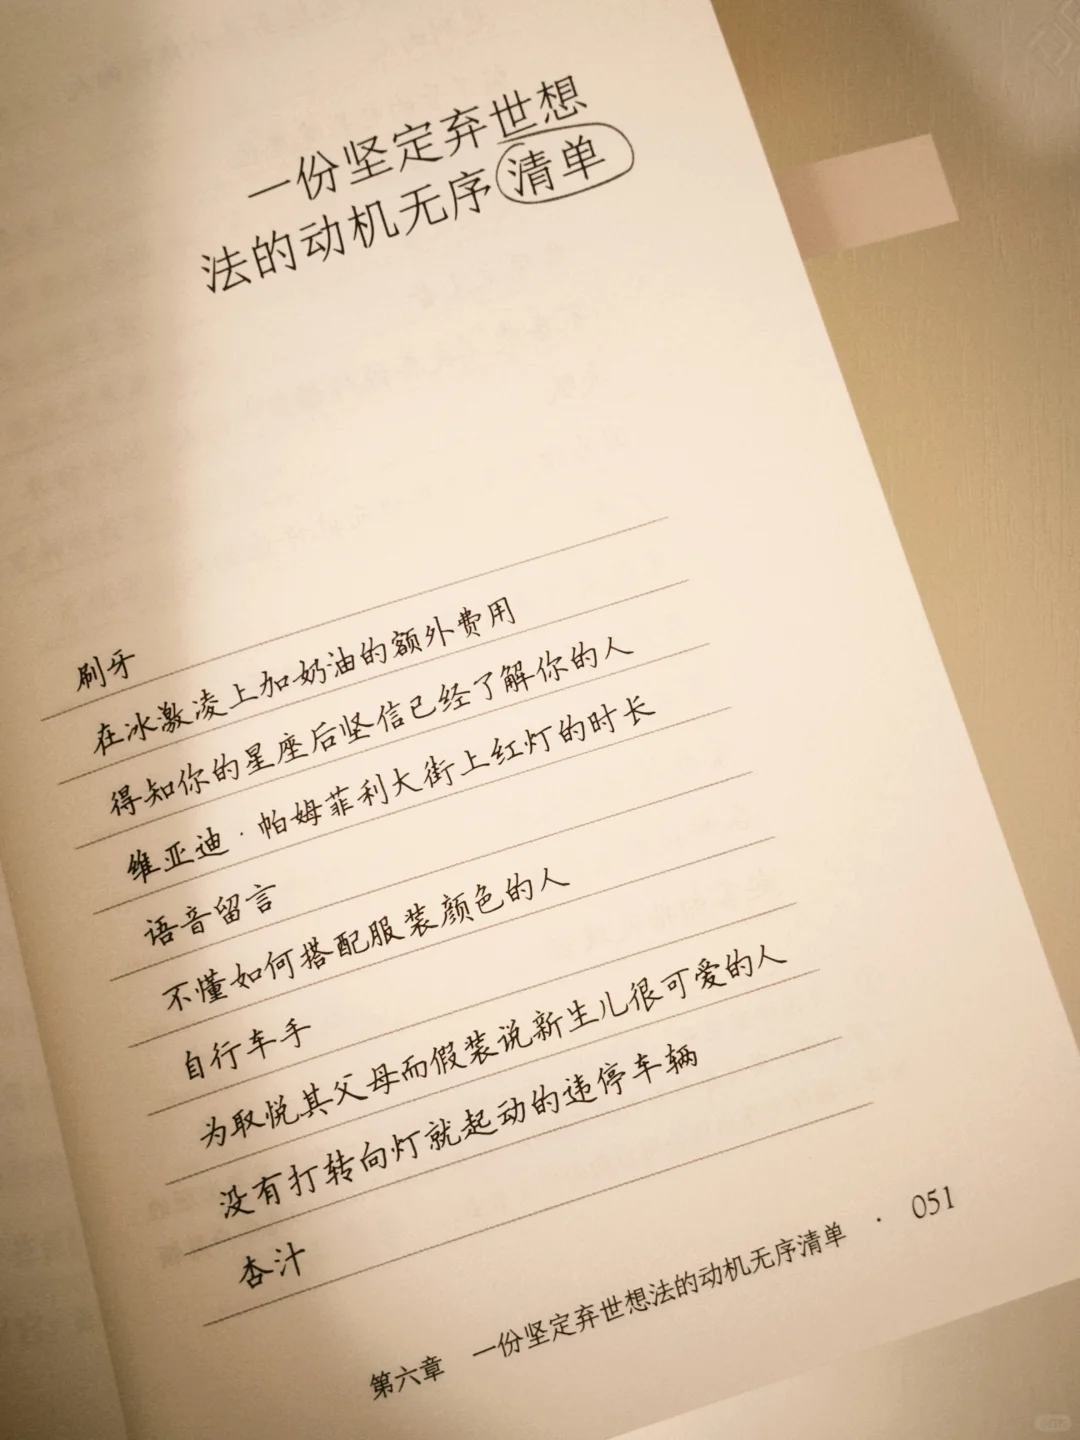 一份坚定弃世想
法的动机无序清单
刷牙
在冰激凌上加奶油的额外费用
得知你的星座后坚信已经了解你的人
维亚迪·帕姆菲利大街上红灯的时长
语音留言
不懂如何搭配服装颜色的人
自行车手
为取悦其父母而假装说新生儿很可爱的人
没有打转向灯就起动的违停车辆
杏汁
第六章 一份坚定弃世想法的动机无序清单 · 051